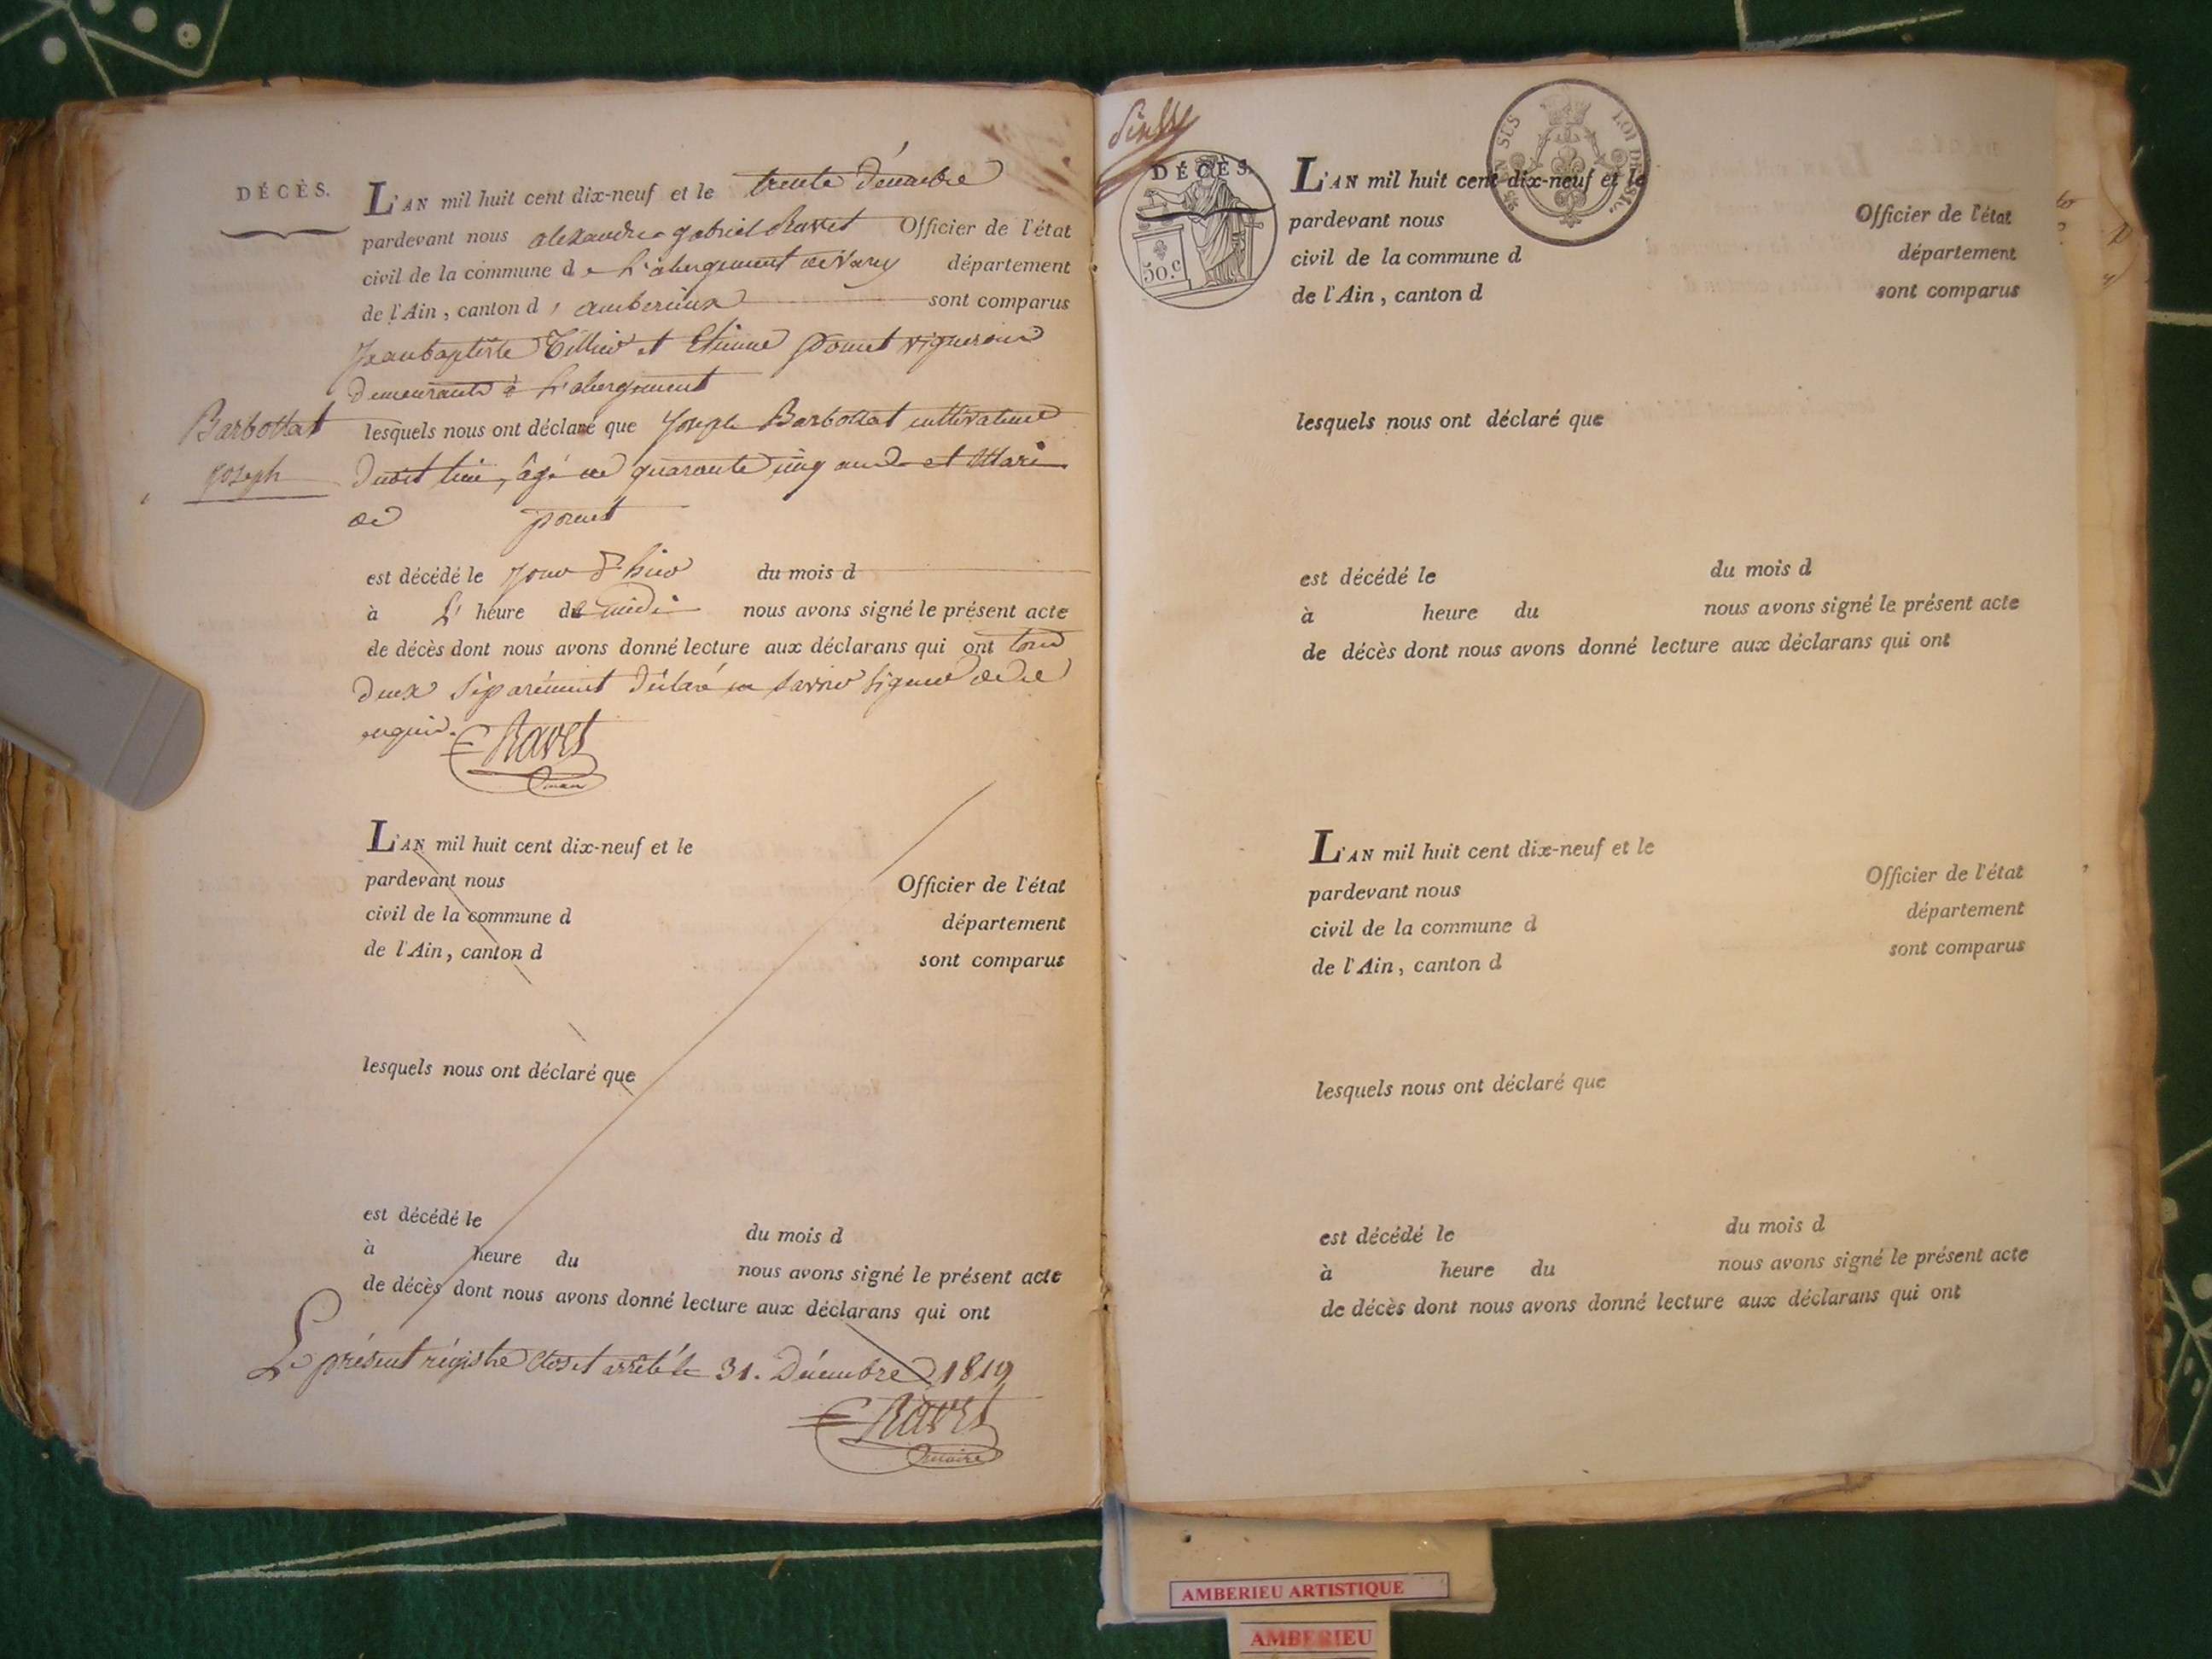 DÉCÈS.
L'AN mil huit cent dix-neuf et le trente décembre
pardevant nous alexandre gabriel Ravet Officier de l'état
civil de la commune de L'abergement de Varey département
de l'Ain, canton d'amberieux sont comparus
Jean baptiste Tillier et Etienne Pomet vignerons
demeurants à L'abergement
Barbollat
Joseph
lesquels nous ont déclaré que Joseph Barbollat cultivateur
dudit lieu, âgé de quarante cinq ans et Mari
de pomet
est décédé le jour d'hier du mois d
à L' heure de midi nous avons signé le présent acte
de décès dont nous avons donné lecture aux déclarans qui ont tous
deux séparément déclaré ne savoir signer de ce
requis.
Ravet
maire
L'AN mil huit cent dix-neuf et le
pardevant nous Officier de l'état
civil de la commune d département
de l'Ain, canton d sont comparus
lesquels nous ont déclaré que
est décédé le du mois d
à heure du nous avons signé le présent acte
de décès dont nous avons donné lecture aux déclarans qui ont
Le présent régistre clos et arrêté le 31. Décembre 1819
Ravet
maire
DÉCÈS.
50.c
EN SUS
LOI DE
L'AN mil huit cent dix-neuf et le
pardevant nous Officier de l'état
civil de la commune d département
de l'Ain, canton d sont comparus
lesquels nous ont déclaré que
est décédé le du mois d
à heure du nous avons signé le présent acte
de décès dont nous avons donné lecture aux déclarans qui ont
L'AN mil huit cent dix-neuf et le
pardevant nous Officier de l'état
civil de la commune d département
de l'Ain, canton d sont comparus
lesquels nous ont déclaré que
est décédé le du mois d
à heure du nous avons signé le présent acte
de décès dont nous avons donné lecture aux déclarans qui ont
AMBERIEU ARTISTIQUE
AMBERIEU